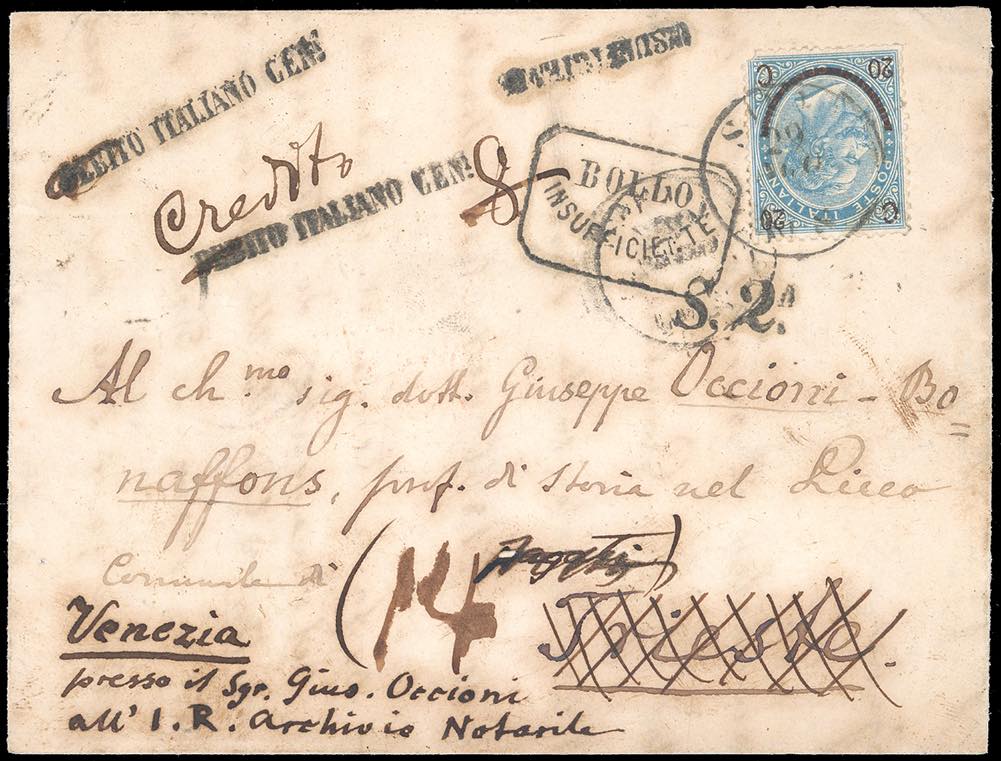 DEBITO ITALIANO CENT
C 20
POSTE ITALIANE
20 C
Credito
DEBITO ITALIANO CENT 8
BOLLO
INSUFFICIENTE
S. 2.A
Al ch.mo sig. dott. Giuseppe Occioni-Bo=
naffons, prof. di Storia nel Liceo
Comunale di
(14 )
Trieste.
Venezia
presso il Sgr. Gius. Occioni
all' I. R. Archivio Notarile